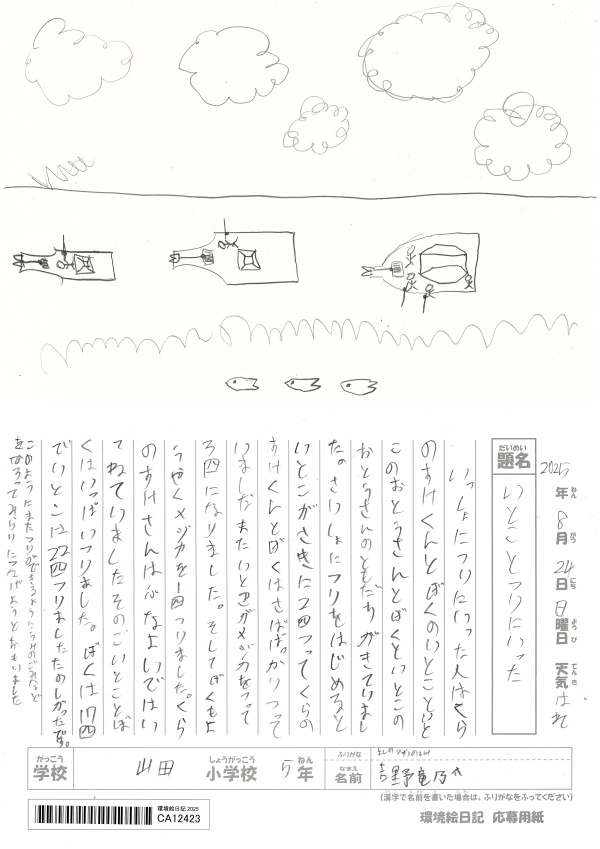 2025年8月24日日曜日 天気はれ
ねん がつ にち ようび てんき
だいめい
題名
いとことつりにいった
いっしょにつりにいった人はくら
のすけくんとぼくのいとこといと
このおとうさんとぼくといとこの
おとうさんのともだちがきていまし
た。さいしょにつりをはじめると
いとこがさきに2匹つってくらの
すけくんとぼくはさばばっかりつって
いましたまたいとこがメジカをつって
3匹になりました。そしてぼくもよ
うやくメジカを1匹つりました。くら
のすけさんはふなよいではい
てねていましたそのごいとことぼ
くはいっぱいつりました。ぼくは17匹
でいとこは22匹つりましたたのしかったです。
このようにまたつりができるようにうみのごみなど
をひろってみらいにつなげようとおもいました
がっこう しょうがっこう ねん
学校 山田 小学校 5年
ふりがな
なまえ
名前 吉野竜乃介
(漢字で名前を書いた場合は、ふりがなをふってください)
環境絵日記2025
CA12423
環境絵日記 応募用紙